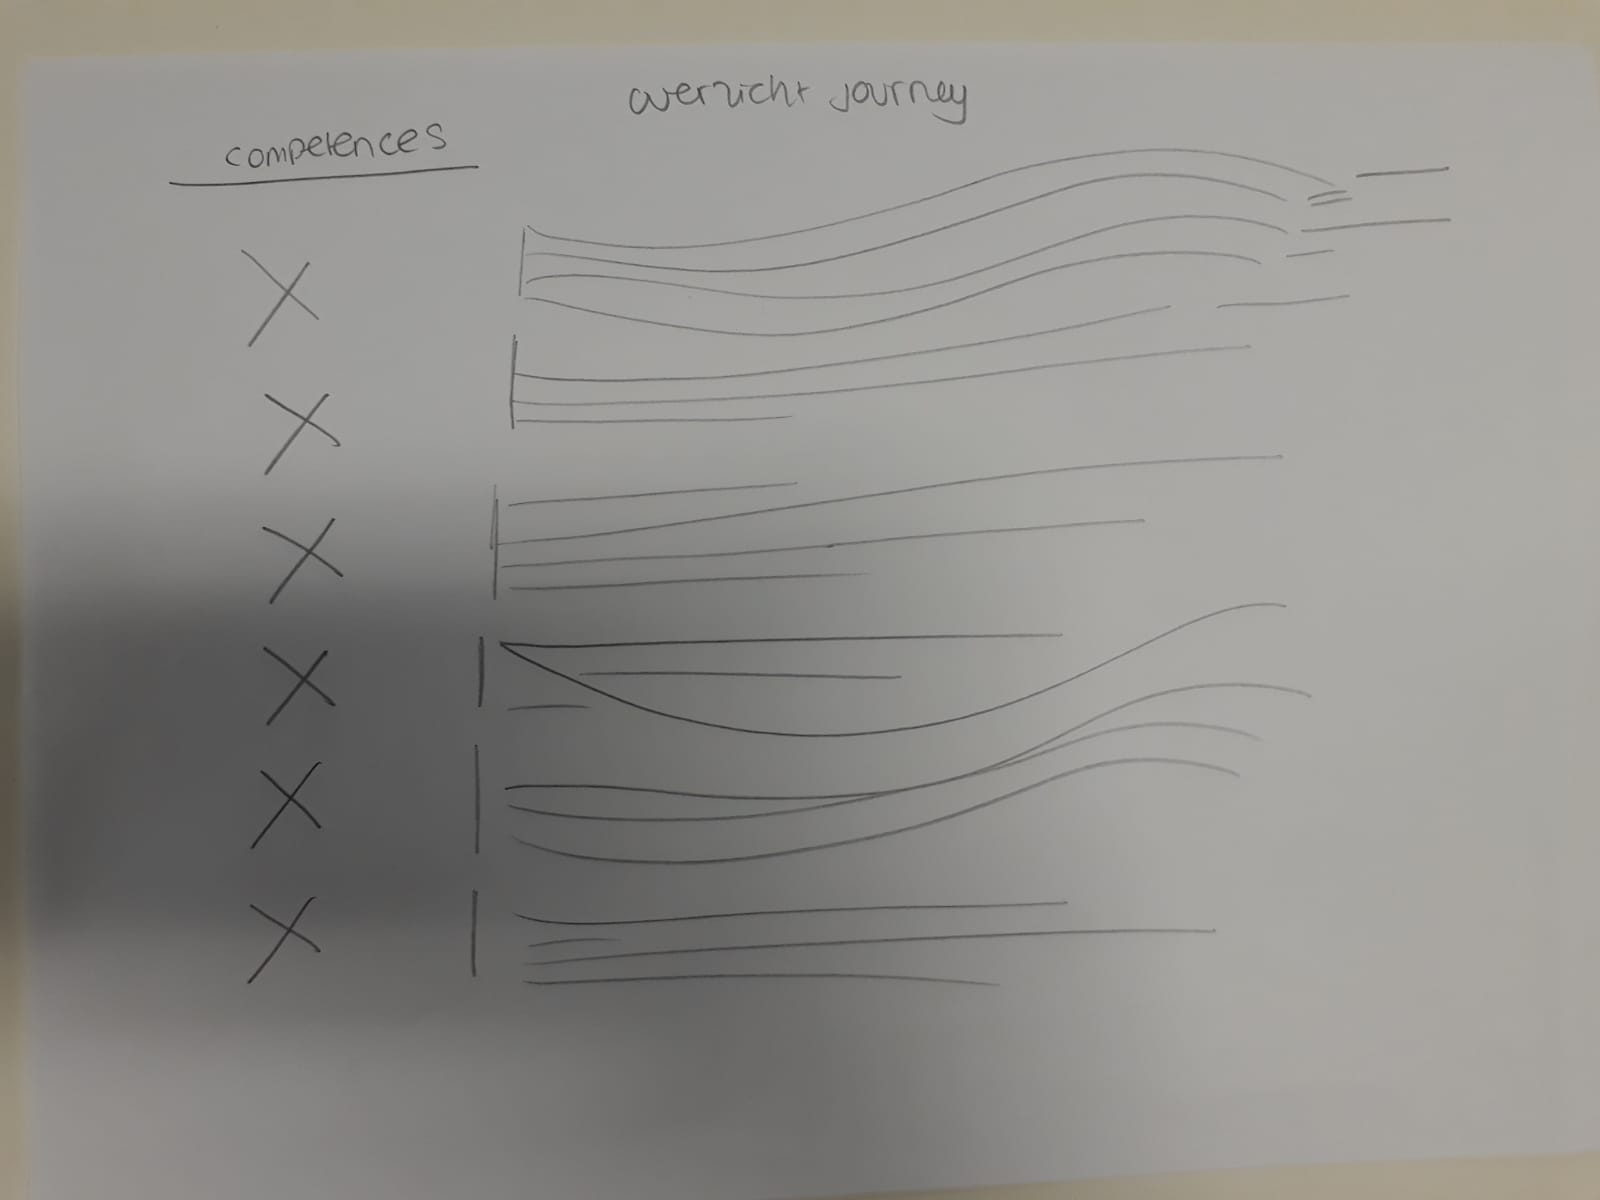 overzicht journey
competences
X
X
X
X
X
X